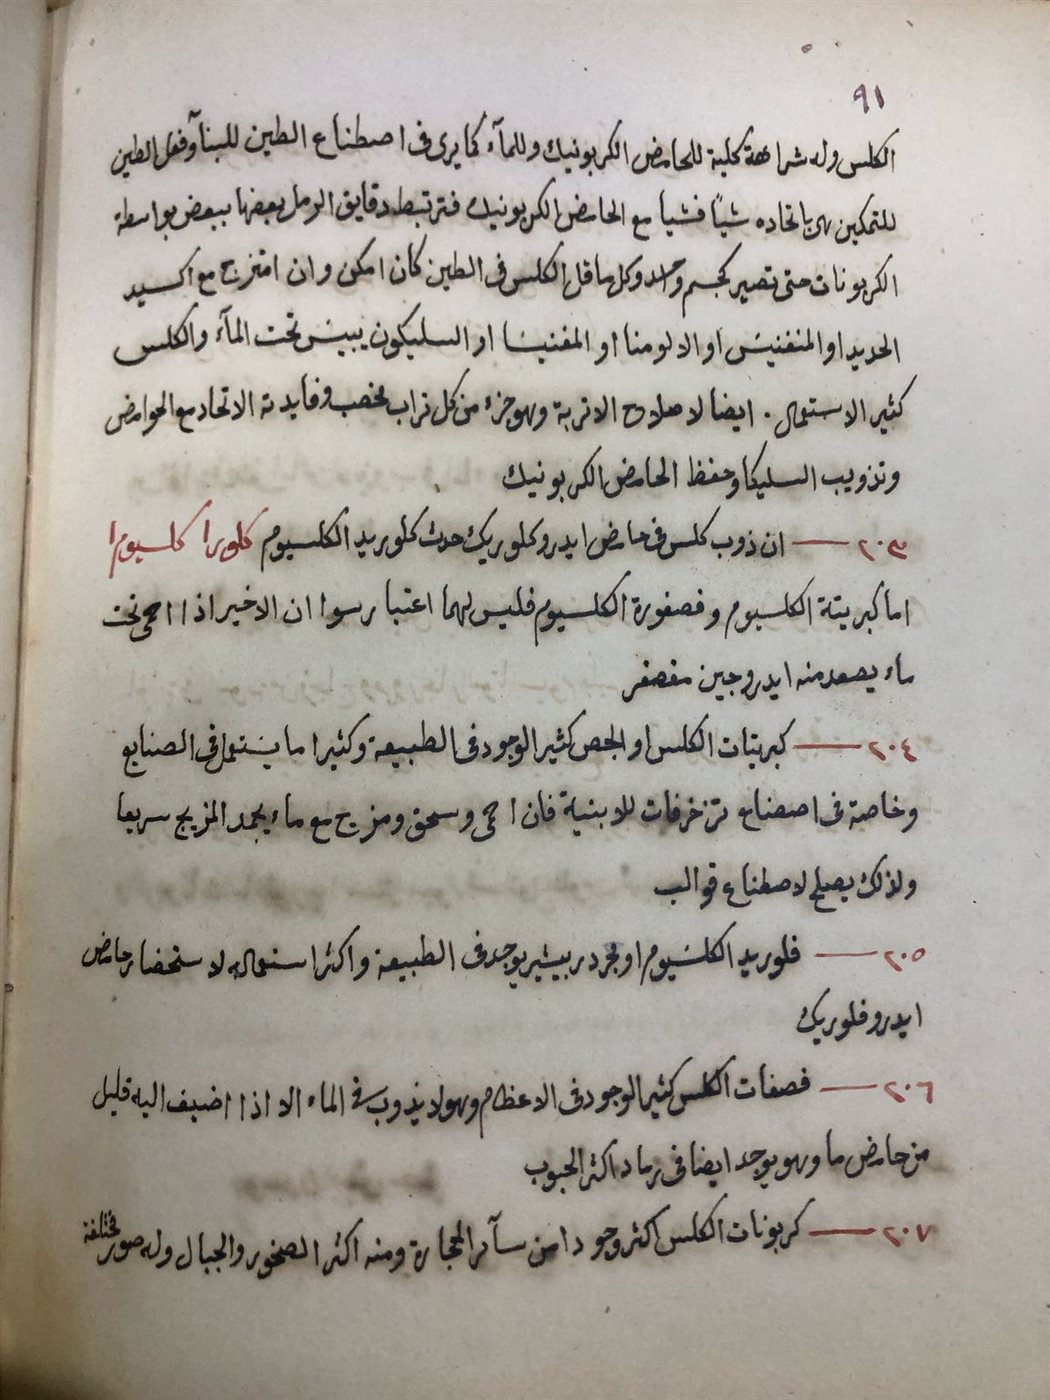 ٩١
الكلس وله شراهة كلية للحامض الكربونيك وللمآء كما يرى فى اصطناع الطين للبنآ وفعل الطين
للتمكين هى باتحاده شيأ فشيا مع الحامض الكربونيك فترتبط دقايق الرمل بعضها ببعض بواسطة
الكربونات حتى تصير كجسم واحد وكل ما قل الكلس فى الطين كان امكن وان امتزج مع اكسيد
الحديد او المنغنيس او الالومنا او المغنيسا او السليكون يبيس تحت المآء والكلس
كثير الاستعمال. ايضا لاصلاح الاتربة وهو جزء من كل تراب مخصب وفايدته الاتحاد مع الحوامض
وتذويب السليكا وحفظ الحامض الكربونيك
٢٠٣ — ان ذوب كلس فى حامض ايدروكلوريك حدث كلوريد الكلسيوم كلورا كلسيوم
اما كبريتة الكلسيوم وفصفورة الكلسيوم فليس لهما اعتبار سوا ان الاخير اذا احمى تحت
ماء يصعد منه ايدروجين مفصفر
٢٠٤ — كبريتات الكلس او الجص كثير الوجود فى الطبيعة وكثيرا ما يستعمل فى الصنايع
وخاصة فى اصطناع تزخرفات للابنية فان احمى وسحق ومزج مع ماء يجمد المزيج سريعا
ولذلك يصلح لاصطناع قوالب
٢٠٥ — فلوريد الكلسيوم او يوجد فى الطبيعة واكثر استعماله لاستحضار حامض
ايدروفلوريك
٢٠٦ — فصفات الكلس كثير الوجود فى الاعظام وهو لا يذوب فى الماء الا اذا اضيف اليه قليل
من حامض ما وهو يوجد ايضا فى رماد اكثر الحبوب
٢٠٧ — كربونات الكلس اكثر وجودا من سآئر الحجارة ومنه اكثر الصخور والجبال وله صور مختلفة